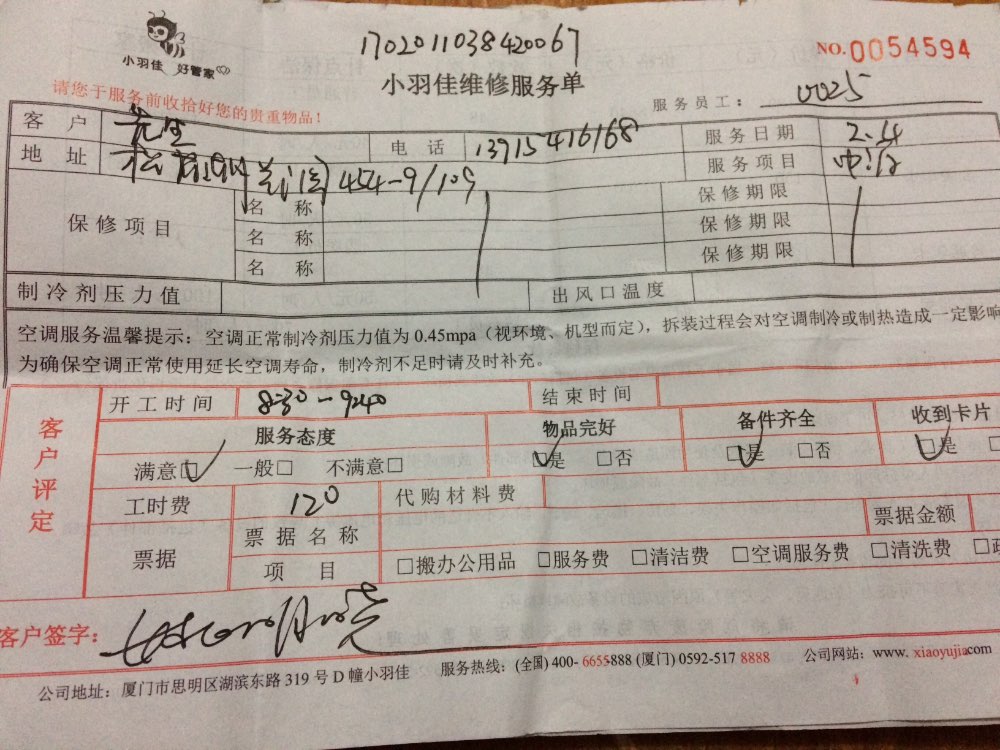 小羽佳 好管家
1702011038420067
NO.0054594
小羽佳维修服务单
请您于服务前收拾好您的贵重物品！
服务员工： 0025
客 户 电 话 13715416168 服务日期 2.4
地 址 454-9/109 服务项目
保修项目 名 称 保修期限
名 称 保修期限
名 称 保修期限
制冷剂压力值 出风口温度
空调服务温馨提示：空调正常制冷剂压力值为 0.45mpa（视环境、机型而定），拆装过程会对空调制冷或制热造成一定影响
为确保空调正常使用延长空调寿命，制冷剂不足时请及时补充。
客户评定
开工时间 8:30-9:40 结束时间
服务态度 物品完好 备件齐全 收到卡片
满意□ 一般□ 不满意□ □是 □否 □是 □否 □是 □
工时费 120 代购材料费
票据 票据名称 票据金额
项 目 □搬办公用品 □服务费 □清洁费 □空调服务费 □清洗费
客户签字：
公司地址：厦门市思明区湖滨东路 319 号 D 幢小羽佳 服务热线：(全国) 400- 6655-888 (厦门) 0592-517 8888 公司网站：www. xiaoyujia.com